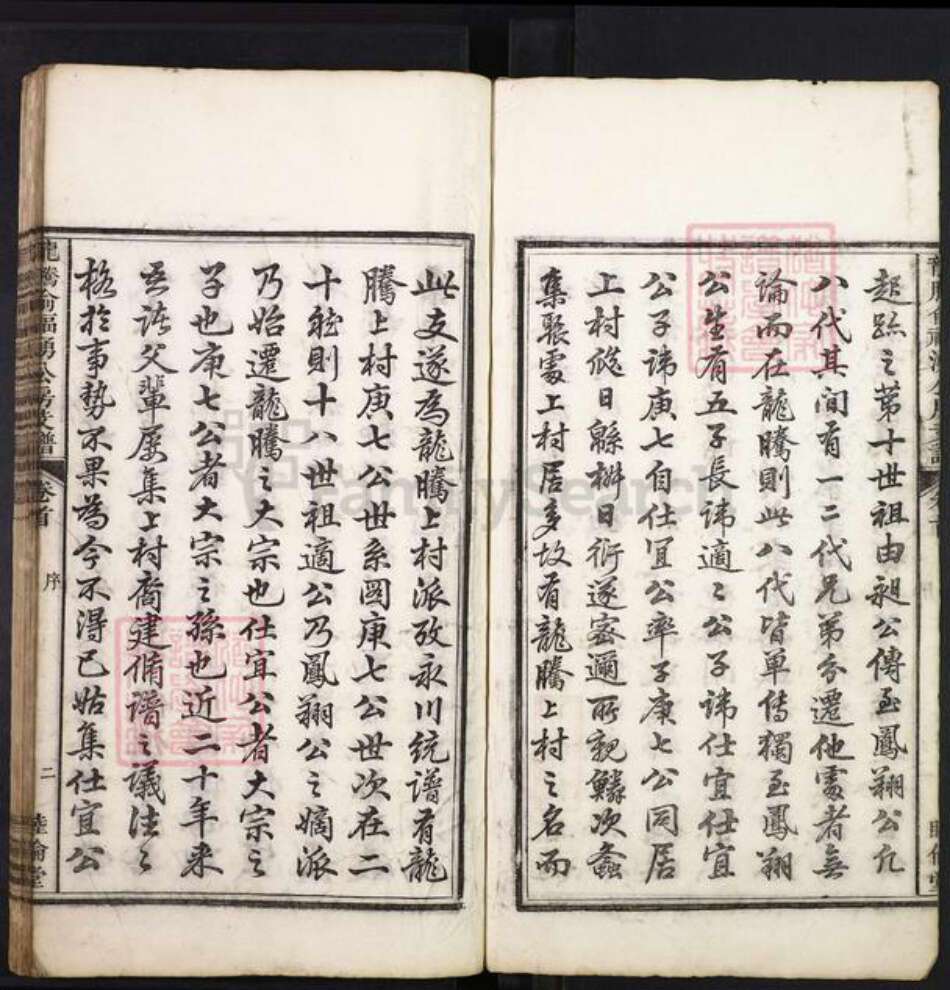 起跡之第十世祖由昶公傳至鳳翔公凢
八代其間有一二代兄弟分遷他處者無
論而在龍騰則此八代皆單傳獨至鳳翔
公生有五子長諱適〻公子諱仕宜仕宜
公子諱庚七自仕宜公率子庚七公同居
上村瓞日緜椒日衍遂密邇所親鱗次螽
集聚處上村居多故有龍騰上村之名而
此支遂為龍騰上村派攷永川統譜有龍
騰上村庚七公世系圖庚七公世次在二
十然則十八世祖適公乃鳳翔公之嫡派
乃始遷龍騰之大宗也仕宜公者大宗之
子也庚七公者大宗之孫也近二十年来
吾諸父輩屡集上村裔建脩譜之議往〻
格於事勢不果為今不得已姑集仕宜公
龍騰俞福湧公房支譜 卷首 序 二 睦倫堂
FamilySearch